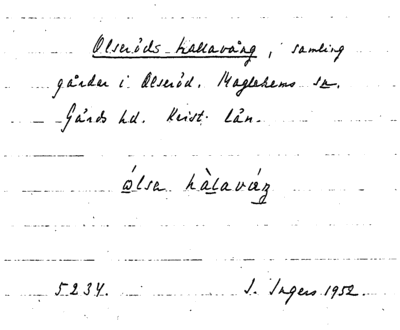 Olseröds-hallavång, samling
gårdar i Olseröd. Maglehems sn.
Gärds hd. Krist. län.
ólsa hàlaváŋ
5234. I. Ingers 1952.